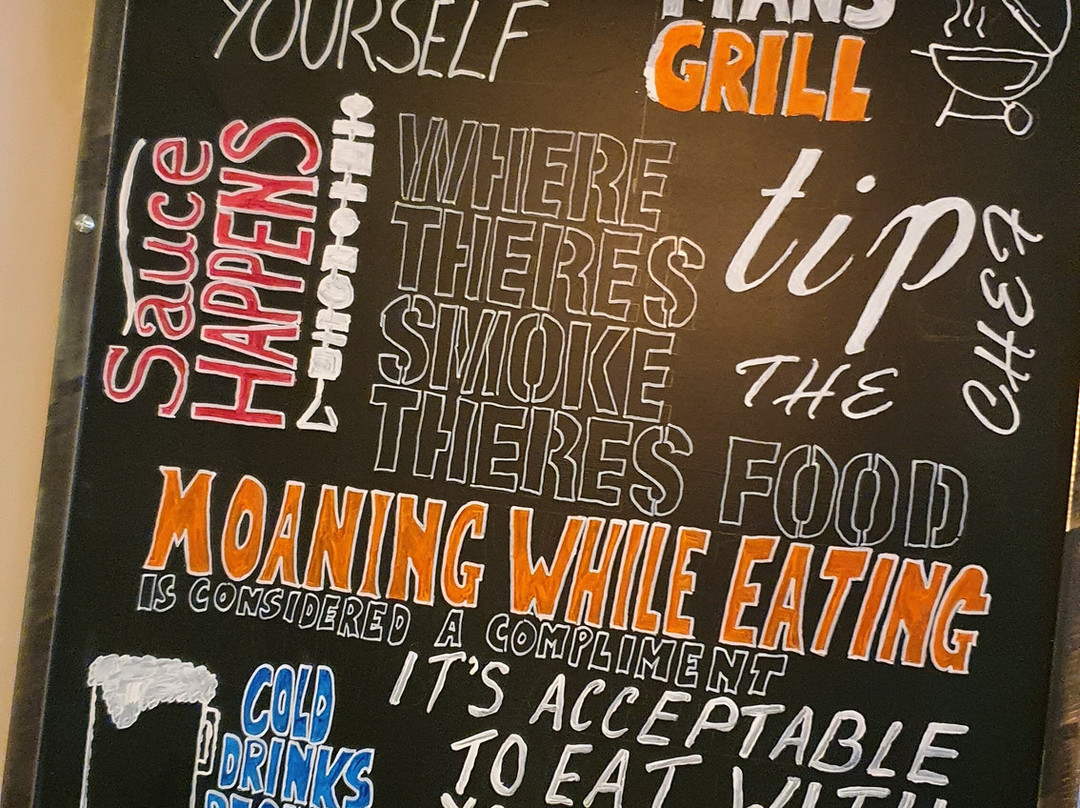 YOURSELF
MANS
GRILL
Sauce
HAPPENS
WHERE
THERES
SMOKE
THERES FOOD
tip
THE
CHEF
MOANING WHILE EATING
IS CONSIDERED A COMPLIMENT
COLD
DRINKS
IT'S ACCEPTABLE
TO EAT WITH